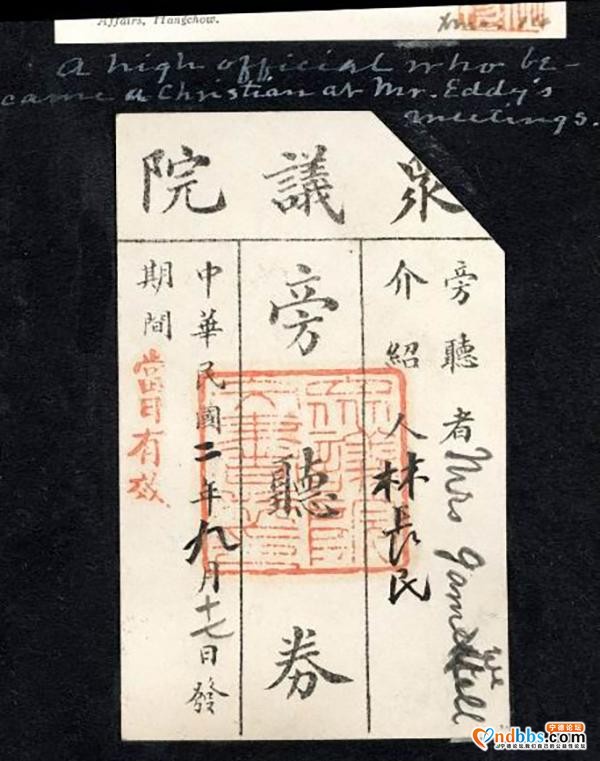 Affairs, Hangchow.
A high official who be-
came a Christian at Mr. Eddy's
meetings.
眾議院
旁聽者 Mrs
介紹人 林長民
旁聽券
中華民國二年九月十七日發
期間 當日有效
宁德论坛
ndbbs.com